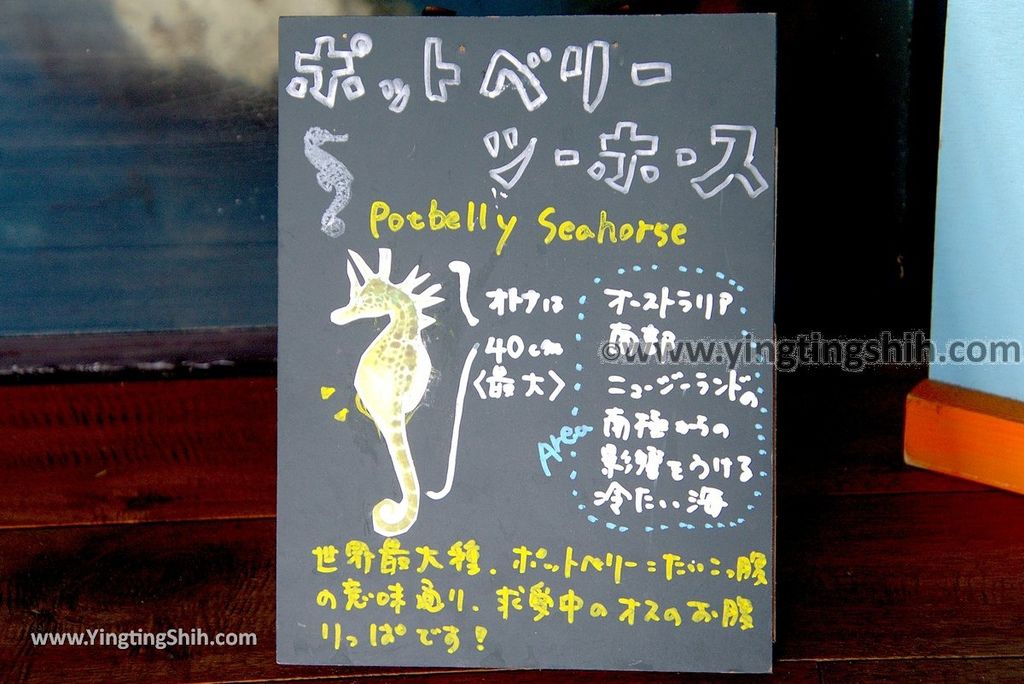 ポットベリー
ツーホース
Potbelly Seahorse
オトナは
40cm
〈最大〉
Area
オーストラリア
南部
ニュージーランドの
南極からの
影響をうける
冷たい海
世界最大種、ポットベリー=たいこっ腹
の意味通り、求愛中のオスのお腹
りっぱです!
©www.yingtingshih.com
www.YingtingShih.com